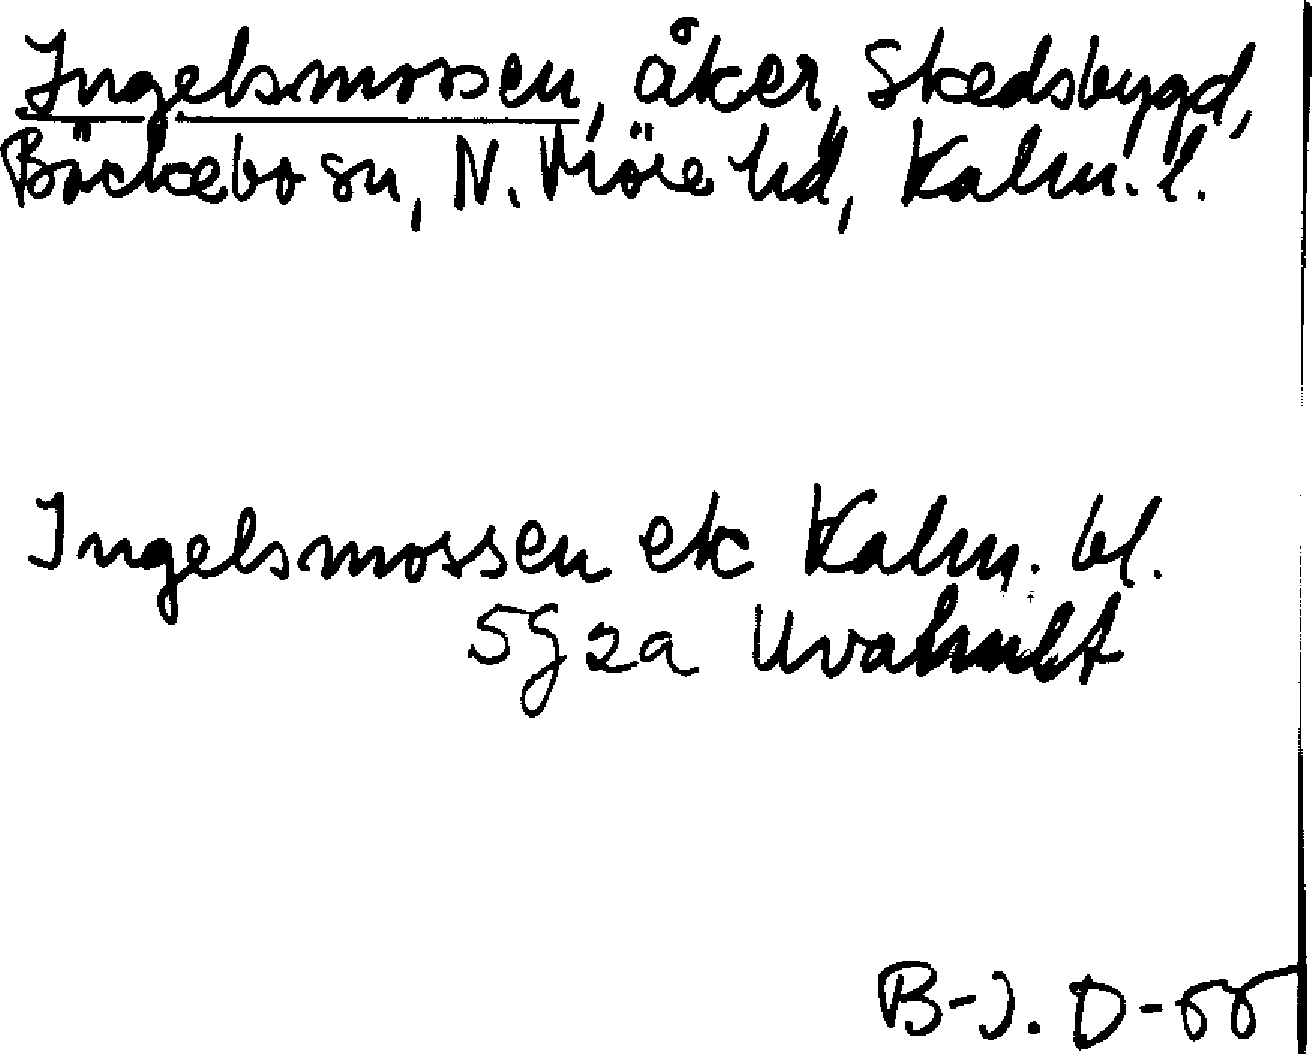 Ingelsmossen, åker, Skedsbygd,
Bäckebo sn, N. Möre hd, Kalm. l.
Ingelsmossen ek Kalm. bl.
5G2a Uvahult
B-J. D-55